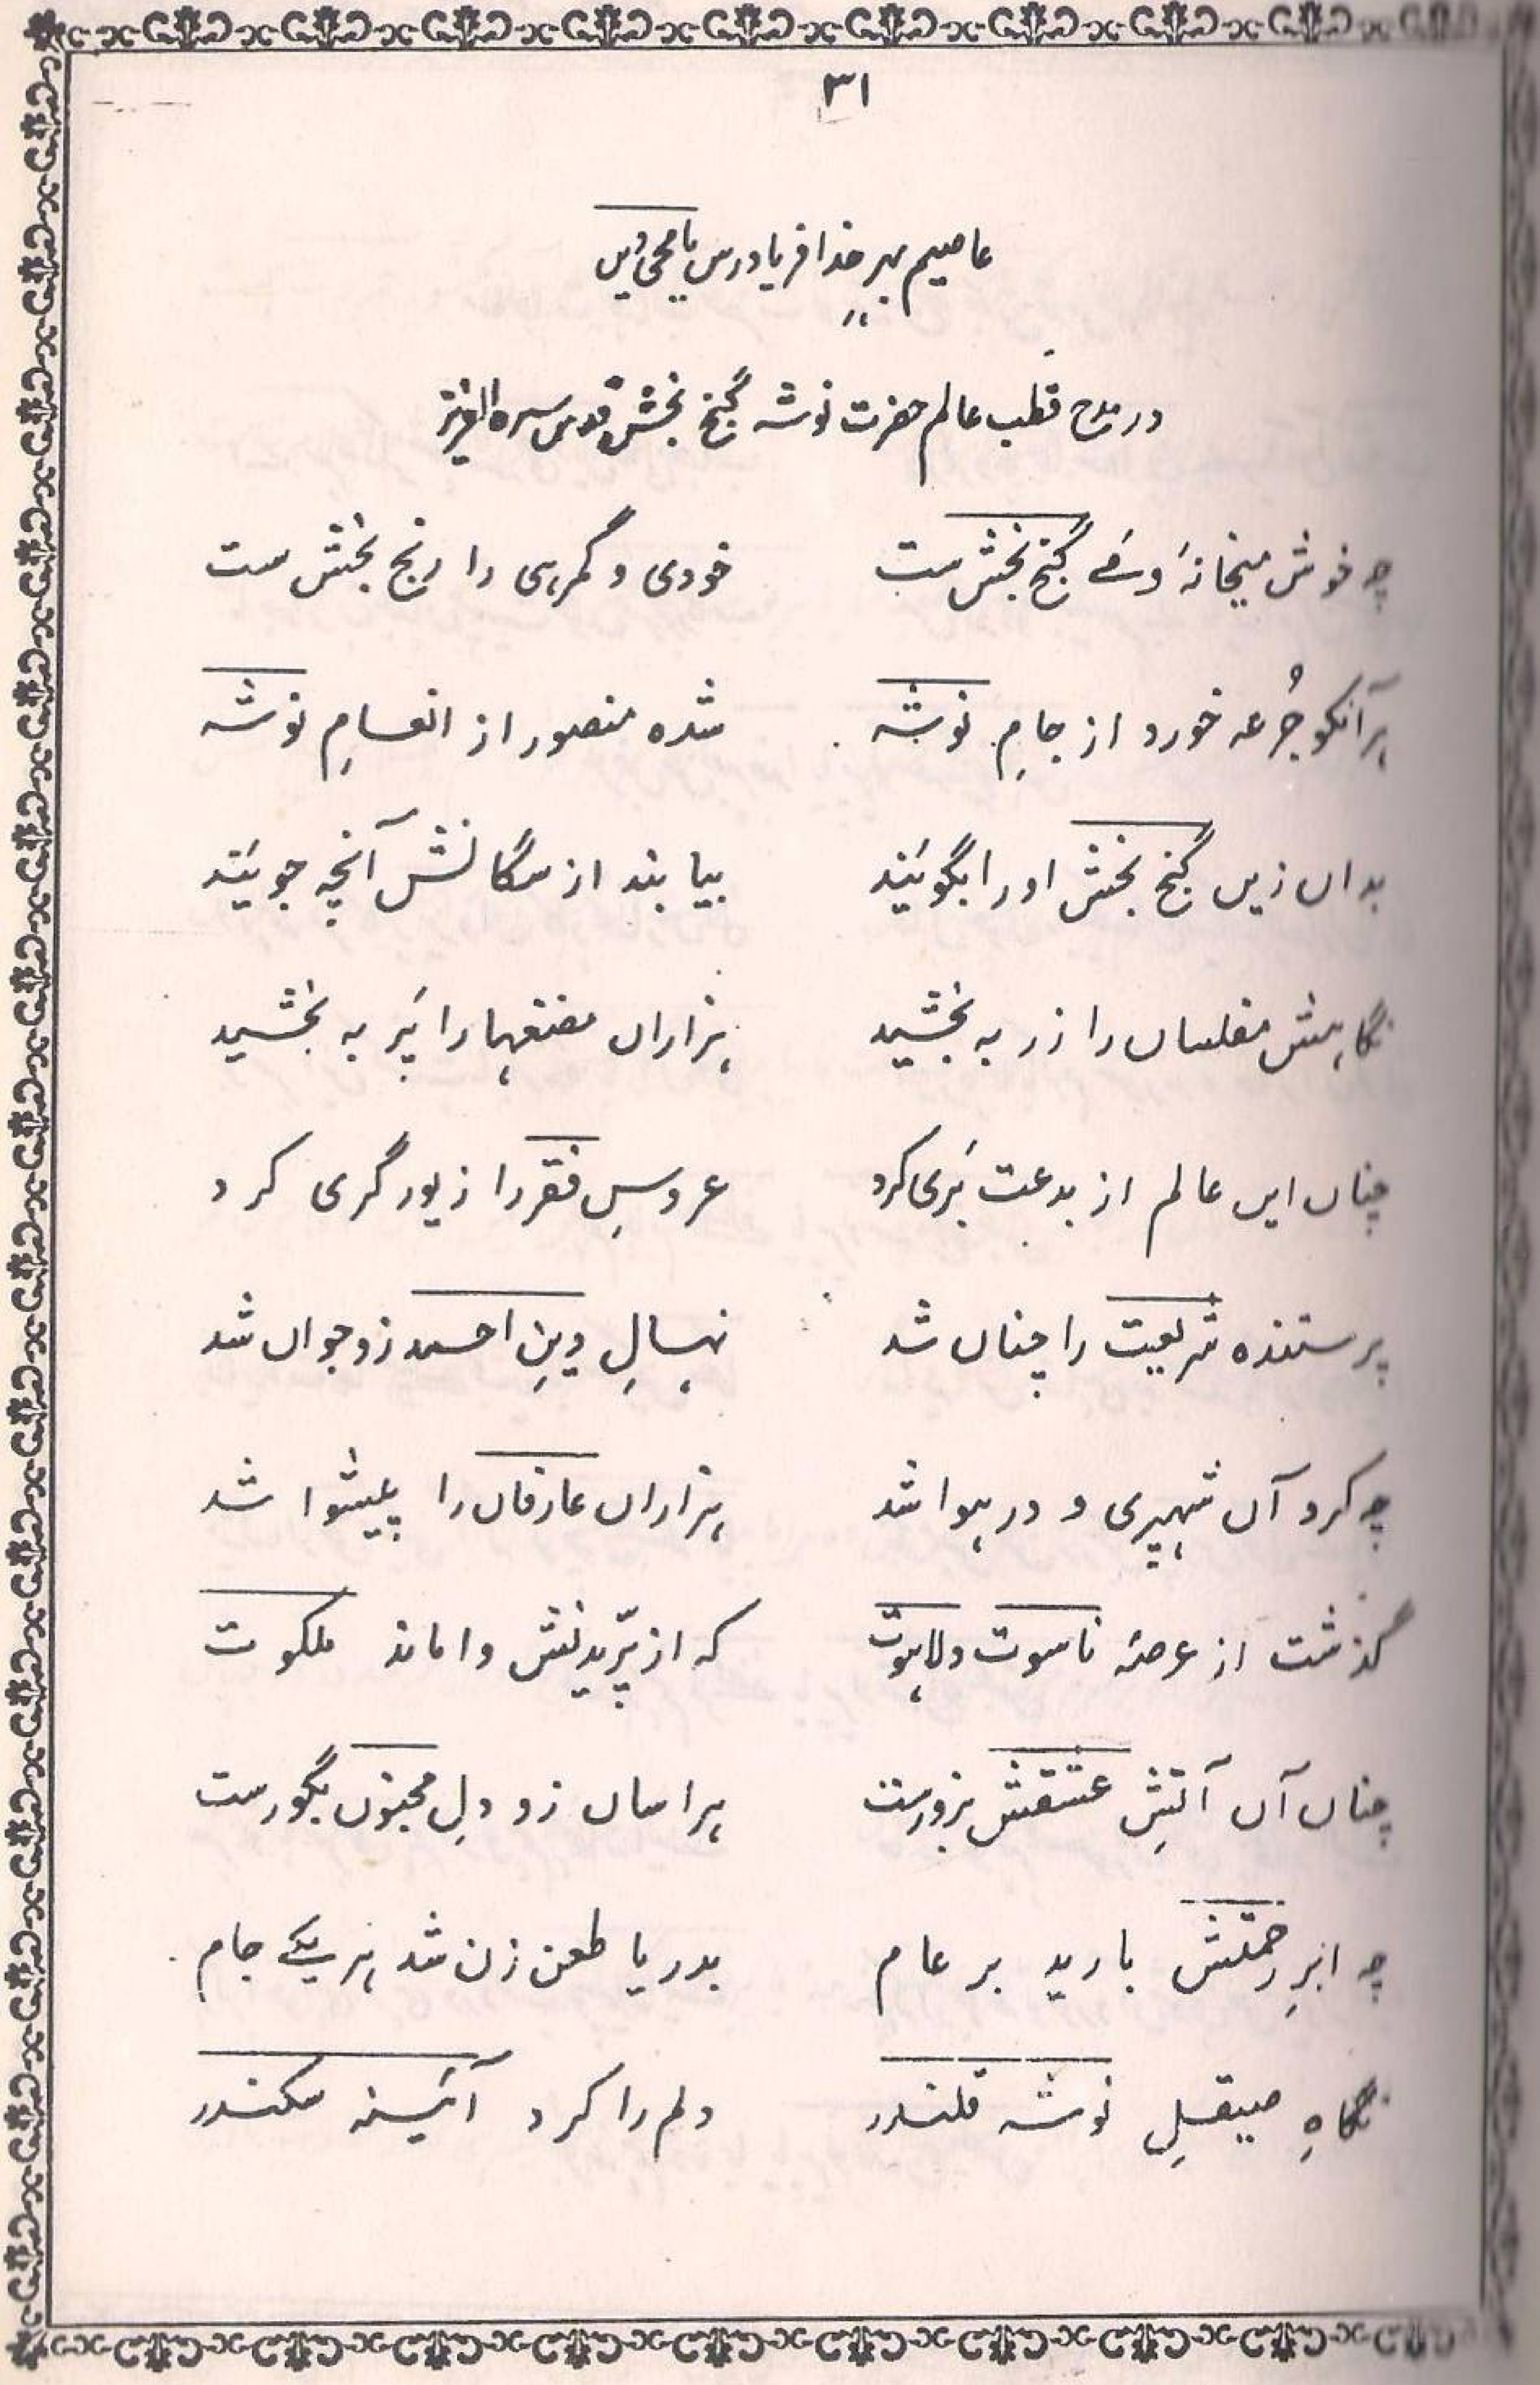 ۳۱
عاصیم بہرِ خدا فریادرس یا محی دیں
در مدح قطب عالم حضرت نوشہ گنج بخش قدس سرہ العزیز
چہ خوش میخانۂ وسے گنج بخش ست خودی و گمرہی را رنج بخش ست
ہر آنکو جُرعہ خورد از جامِ نوشہ شدہ منصور از انعامِ نوشہ
بداں زیں گنج بخش او را بگوئند بیابند از سگانش آنچہ جوئند
نگاہش مفلساں را زر بہ بخشید ہزاراں مضغہا را پَر بہ بخشید
چناں ایں عالم از بدعت بَری کرد عروسِ فقر را زیور گری کرد
پرستندہ شریعت را چناں شد نہالِ دینِ احمد زو جواں شد
چہ کرد آں شہپری و در ہوا شد ہزاراں عارفاں را پیشوا شد
گذشت از عرصۂ ناسوت و لاہوت کہ از پرّیدنش واماند ملکوت
چناں آں آتشِ عشقش بزورست ہراساں زو دلِ مجنوں بگورست
چہ ابرِ رحمتش بارید بر عام بدریا طعن زن شد ہر یکے جام
نگاہِ صیقلِ نوشہ قلندر دلم را کرد آئینہ سکندر